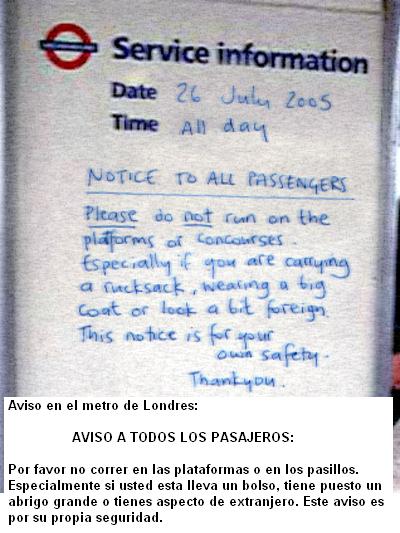 Service information
Date 26 July 2005
Time All day
NOTICE TO ALL PASSENGERS
Please do not run on the
platforms or concourses.
Especially if you are carrying
a rucksack, wearing a big
coat or look a bit foreign.
This notice is for your
own safety.
Thankyou.
Aviso en el metro de Londres:
AVISO A TODOS LOS PASAJEROS:
Por favor no correr en las plataformas o en los pasillos.
Especialmente si usted esta lleva un bolso, tiene puesto un
abrigo grande o tienes aspecto de extranjero. Este aviso es
por su propia seguridad.